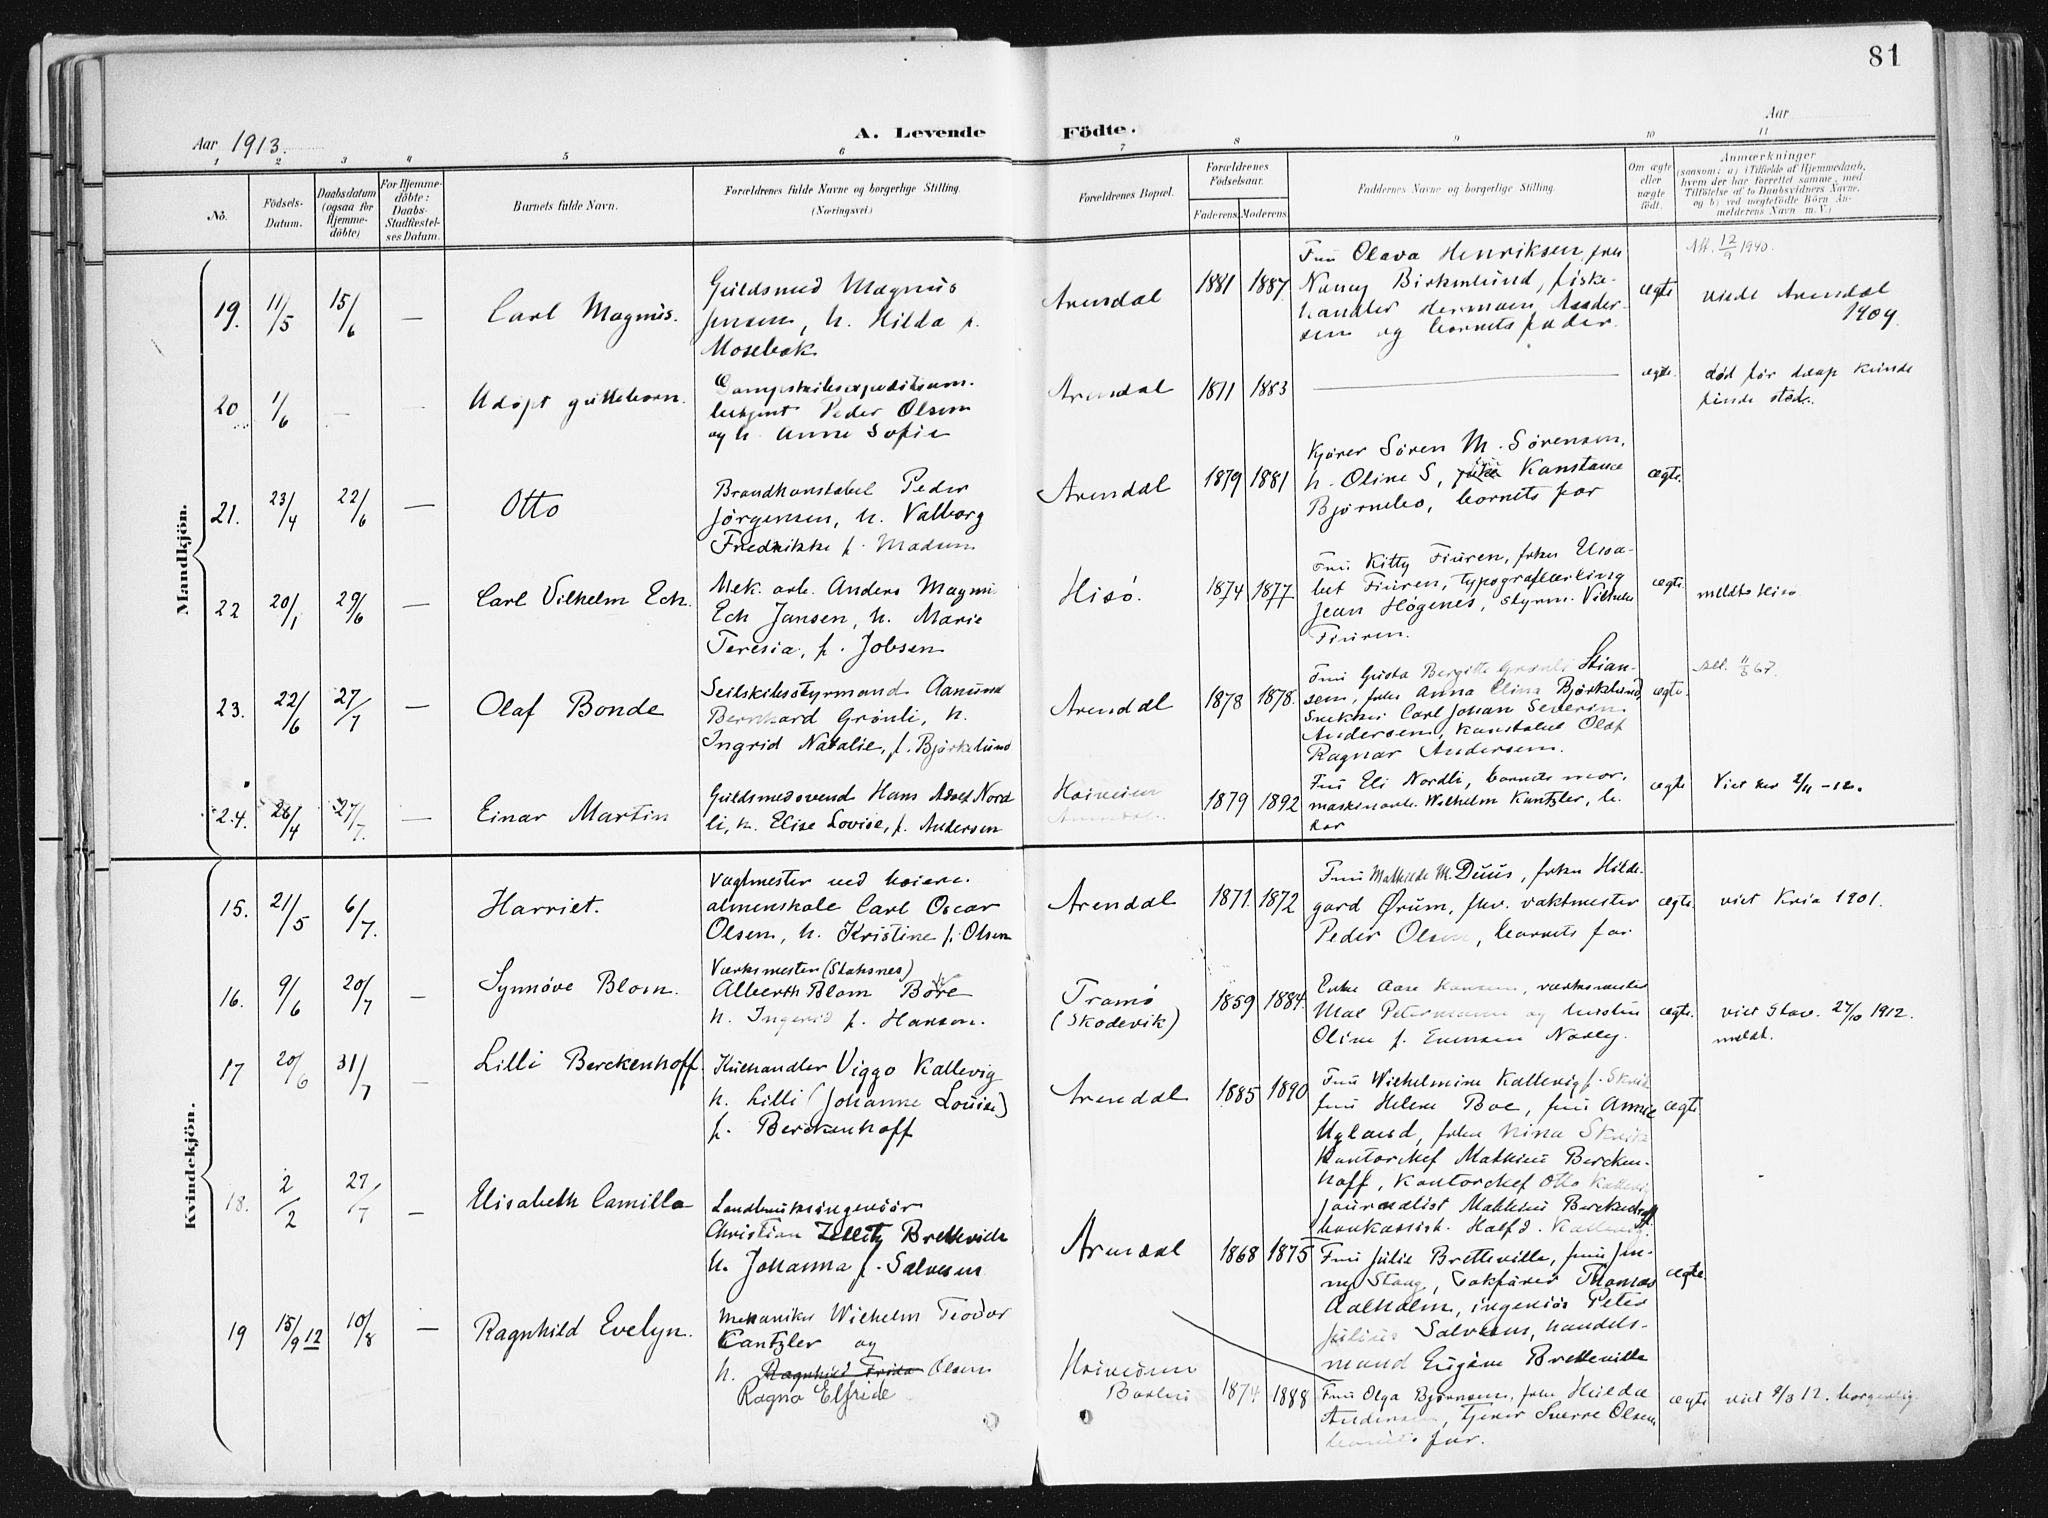 81
Aar 1913.
A. Levende Födte.
Aar
1 2 3 4 5 6 7 8 9 10 11
No.
Födsels-Datum.
Daabsdatum (ogsaa for Hjemme-döbte)
For Hjemme-döbte: Daabs-Stadfæstel-ses Datum.
Barnets fulde Navn.
Forældrenes fulde Navne og borgerlige Stilling.
(Næringsvei.)
Forældrenes Bopæl.
Forældrenes Födselsaar.
Faderens. Moderens.
Faddernes Navne og borgerlige Stilling.
Om ægte eller uægte födt.
Anmærkninger
(saasom: a) i Tilfælde af Hjemmedaab, hvem der har forrettet samme, med Tilföielse af to Daabsvidners Navne, og b) ved uægtefödte Börn Anmelderens Navn m. V.)
Mandkjön.
19. 11/5 15/6 — Carl Magnus.
Guldsmed Magnus
Jensen, h. Hilda f.
Mosebak
Arendal 1881 1887
Fru Olava Henriksen, fru
Nancy Birkenlund, fiske-
handler Herman Aader-
sen og barnets fader.
ægte
Att. 12/9 1940.
viede Arendal
1909.
20 1/6 — — Udøpt guttebarn.
Dampskibsexpeditions-
betjent Peder Olsen
og h. Anne Sofie
Arendal 1811 1883
ægte.
død før daap kunde
finde sted.
21. 23/4 22/6 — Otto
Brandkonstabel Peder
Jørgensen, h. Valborg
Fredrikke f. Madsen
Arendal 1879 1881
Kjører Søren M. Sørensen,
h. Oline S, Konstance
Bjørnebo, barnets far
ægte.
22 20/1 29/6 — Carl Vilhelm Ech.
Mek. arb. Anders Magnus
Ech Jansen, h. Marie
Teresia, f. Jobsen
Hisö. 1874 1877
Fru Kitty Fiuren, frken Elisa-
bet Fiuren, typograflærling
Jean Høgenes, styrm. Vilhelm
Fiuren.
ægte.
meldt Hisø
23. 22/6 27/7 — Olaf Bonde
Seilskibsstyrmand Aanund
Bernhard Grönli, h.
Ingrid Natalie, f. Bjørkelund
Arendal 1878 1878.
Fru Gusta Bergitte Grönli Stian-
sen, frken Anna Elina Björklund,
Snekker Carl Johan Severin
Andersen, konstabel Olaf
Ragnar Andersen.
ægte.
Att. 11/5 67.
24. 26/4 27/7. — Einar Martin
Guldsmedsvend Hans Adolf Nord
li, h. Elise Lovise, f. Andersen
1879 1892
Fru Eli Nordli, barnets mor,
maskinarb. Wilhelm Kantzler, b.
far
ægte
Viet her 2/11 -12.
Kvindekjön.
15. 21/5 6/7. Harriet.
Vagtmester ved høiere
almenskole Carl Oscar
Olsen, h. Kristine f. Olsen
Arendal 1871. 1872
Fru Mathilde M. Duus, frken Hilde-
gard Ørum, fhv. vaktmester
Peder Olsen, barnets far
ægte.
viet Kria 1901.
16. 9/6 20/7 — Synnöve Blom.
Værksmester (Staksnes)
Alberth Blom Børe
h. Ingerid f. Hansen.
Tromø
(Skodevik)
1859 1884.
Enke Aase Hansen, værksmester
Max Petermann og hustru
Oline f. Evensen Næsby.
ægte.
viet Stav. 27/10 1912.
meldt.
17 20/6 31/7 — Lilli Berckenhoff.
Kulhandler Viggo Kallevig
h. Lilli (Johanne Louise)
f. Berckenhoff
Arendal 1885 1890
Fru Wilhelmine Kallevig f.
fru Helene Boe, fru Annie
Ugland, frken Nina
Kontorchef Mathieu Bercken-
hoff, Kontorchef Otto Kallevig
journalist Mathieu Berckenhoff
bankassist. Halfd. Kallevig.
ægte
18. 2/2 27/7 — Elisabeth Camilla
Landbruksingeniör
Christian Zetlitz Bretteville
h. Johanna f. Salvesen
Arendal 1868 1875
Fru Julie Bretteville, fru Jen-
ny Stang, Sakfører Thomas
Aalholm, ingeniør Peter
Julius Salvesen, handels-
mand Eugène Bretteville
ægte.
19 15/9 12 10/8 — Ragnhild Evelyn.
Mekaniker Wilhelm Teodor
Cantzler og
h. Ragnhild Frida Olsen
Ragna Elfride
1874. 1888
Fru Olga Bjørnsen, frken Hulda
Andersen, Tjener Sverre Olsen
barnets far.
ægte
viet 9/3 12. borgerlig